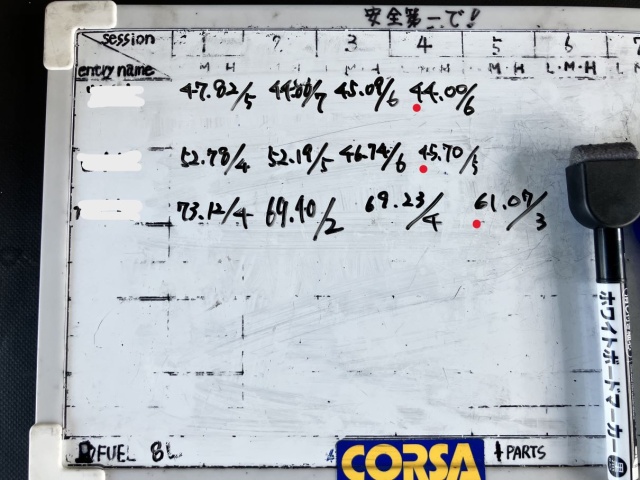 安全第一で!!
session 1 2 3 4 5 6 7
entry name M H M H M H M H L・M・H L
47.82/5 44.00/7 45.09/6 44.00/6
52.78/4 52.19/5 46.74/6 45.70/5
73.12/4 69.40/2 69.23/4 61.07/3
FUEL 8L PARTS
CORSA
ホワイトボードマーカー 黒